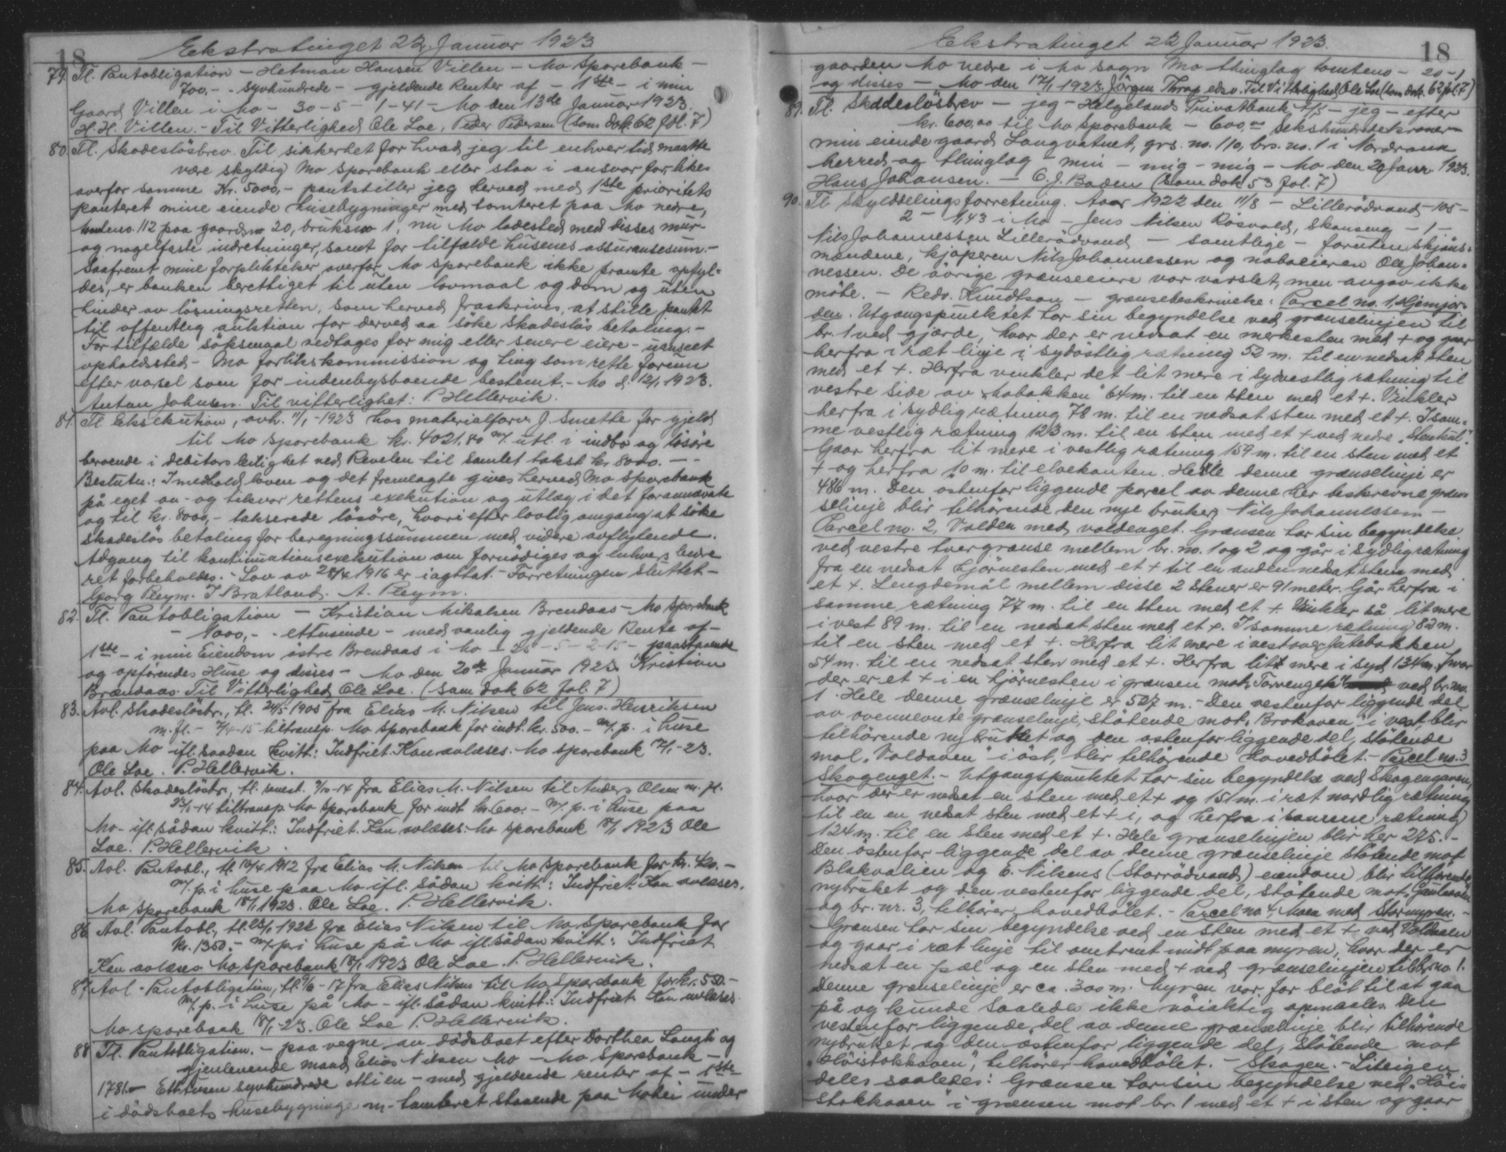 18
Ekstratinget 22 Januar 1923
79. Tl. Pantobligation - Hetman Hansen Villen - Mo Sparebank -
700,- - syvhundrede - gjeldende Renter af - 1ste - i min
Gaard Villen i Mo - 30-5- 1-41 - Mo den 13de Januar 1923.
H. H. Villen. - Til Vitterlighed Ole Loe, Peder Pedersen (som dok. 62 fol. 7)
80. Tl. Skadeslösbrev. Til sikkerhet for hvad jeg til enhver tid maatte
være skyldig Mo Sparebank eller staa i ansvar for likes
overfor samme Kr. 5000,- pantstiller jeg herved med 1ste prioritets
panteret mine eiende husebygninger med tomteret paa Mo nedre,
tomteno. 112 paa gaardsno 20, bruksno 1, nu Mo ladested med disses mur-
og nagelfaste indretninger, samt for tilfælde husenes assuransesum.-
Saafremt mine forpliktelser overfor Mo Sparebank ikke promte opfyl-
des, er banken berettiget til uten lovmaal og dom og uten
hinder av lösningsretten, som herved fraskrives, at stille pantet
til offentlig auktion for derved aa söke skadeslös betaling.-
For tilfælde söksmaal vedtages for mig eller senere eiere - uanseet
opholdssted - Mo forlikskommission og ting som rette forum
efter varsel som for indenbysboende bestemt. - Mo d. 12/1 1923.
Anton Johnsen. Til vitterlighet: P. Hellervik.
81. Tl. Eksekution, avh. 11/1-1923 hos materialforv. J. Smethe for gjeld
til Mo Sparebank kr. 4021.80 m/ utl. i indbo og lösöre
beroende i debitors leilighet ved Revelen til samlet takst kr. 8000. -
Beslutn.: I medhold loven og det fremlagte gives herved Mo Sparebank
på eget an- og tilsvar rettens exekution og utlæg i det forannævnte
og til kr. 8000,- takserede lösöre, hvori efter lovlig omgang at söke
skadeslös betaling for beregningssummen med videre avflytende.
Adgang til kontinuationsexekution om fornödiges og enhver bedre
ret forbeholdes. - Lov av 28/4 1916 er iagttat. - Forretningen sluttet -
Georg Pleym. J. Bratland. A. Pleym.
82. Tl. Pantobligation - Kristian Mikalsen Brendaas - Mo Sparebank
- 1000,- - ettusende - med vanlig gjeldende Rente af -
1ste - i min Eiendom östre Brendaas i Mo - 25 - 5 - 2-15 - paastaaende
og opförendes Huse og disses - Mo den 20de Januar 1923 Kristian
Brændaas. Til Vitterlighed Ole Loe. (Som dok 62 fol. 7)
83. Avl. Skadeslösbr., tl. 24/5-1905 fra Elias M. Nilsen til Jens Henriksen
m. fl. - 7/4-15 tiltransp. Mo Sparebank for indt. kr. 500.- m/. p. i huse
paa Mo ifl. saadan kvitt.: Indfriet. Kan avlæses. Mo Sparebank 18/1-23.
Ole Loe. P. Hellervik.
84. Avl. Skadeslösbr., tl. senest. 9/10-14 fra Elias M. Nilsen til Anders Olsen m. fl.
23/11-14 tiltransp. Mo Sparebank for indt kr. 600.- m/. p. i huse paa
Mo - ifl. sådan kvitt.: Indfriet. Kan avlæses. Mo Sparebank 18/1 1923 Ole
Loe. P. Hellervik.
85. Avl. Pantobl., tl. 10/4 1912 fra Elias M. Nilsen til Mo Sparebank for kr. 420.-
m/. p. i huse paa Mo ifl. sådan kvitt.: Indfriet. Kan avlæses.
Mo Sparebank 18/1 1923. Ole Loe. P. Hellervik.
86. Avl. Pantobl., tl. 23/1 1922 fra Elias Nilsen til Mo Sparebank for
kr. 1350.- m/. p. i huse på Mo ifl. sådan kvitt.: Indfriet
Kan avlæses Mo Sparebank 18/1 1923 Ole Loe P. Hellervik.
87. Avl. Pantobligation, tl. 9/6-17 fra Elias Nilsen til Mo Sparebank for kr. 550.-
m/. p. i huse på Mo - ifl. sådan kvitt.: Indfriet Kan avlæses.
Mo Sparebank 18/1-23. Ole Loe P. Hellervik.
88. Tl. Pantobligation. - paa vegne av dödsboet efter Dorthea Lough og
gjenlevende mand Elias Nilsen Mo - Mo Sparebank -
1781.- Ettusen syvhundrede ottien - med gjeldende renter af - 1ste
i dödsboets husebygninge m. tomteret staaende paa Mo i under
18
Ekstratinget 22 Januar 1923.
gaarden Mo nedre i Mo sogn Mo thinglag tomteno - 20-1
og disses - Mo den 17/1 1923. Jörgen Thrap edsv. Til Vitterlighed Ole Loe (som dok. 62 fol 7)
89. Tl. Skadeslösbrev - jeg - Helgelands Privatbank A/S - jeg - efter
kr. 600,00 til Mo Sparebank - 600,00 Sekshundredekroner -
min eiende gaard Langvatnet, grs. no. 110, brs. no. 1 i Nordrana
herred og thinglag - min - mig - mig - Mo den 20 janr 1923.
Hans Johansen. - C. J. Baden (Som dok 53 fol. 7)
90. Tl. Skylddelingsforretning. Aaar 1922 den 11/8 - Lillerödvand - 105 -
2 - 1,43 i Mo - Jens Nilsen Rösvold, Skanseng - 1 -
Nils Johannessen Lillerödvand - samtlige - foruten skjöns-
mændene, kjöperen Nils Johannessen og naboeieren Ole Johan-
nessen. De övrige grænseeiere var varslet, men avgav ikke
möte. - Redv. Knudtson - grænsebeskrivelse: Parcel no. 1, Hjemjor-
den. Utgangspunktet tar sin begyndelse ved grænselinjen til
br. 1 ved gjærde, hvor der er nedsat en merkesten med + og gaar
herfra i ræt linje i sydöstlig rætning 52 m. til en nedsat sten
med et +. Herfra vinkler det lit mere i sydvestlig rætning til
vestre side av "Mobakken" 64 m. til en sten med et +. Vinkler
herfra i sydlig rætning 70 m. til en nedsat sten med et +. I sam-
me vestlig rætning 123 m. til en sten med et + ved nedre
Gaar herfra lit mere i vestlig rætning 159 m. til en sten med et
+ og herfra 10 m. til elvekanten. Hele denne grænselinje er
486 m. Den östenfor liggende parcel av denne her beskrevne græn-
selinje blir tilhörende den nye bruker Nils Johannessen -
Parcel no. 2, Volden med voldenget. Grænsen tar sin begyndelse
ved vestre tvergrænse mellem br. no. 1 og 2 og går i sydlig rætning
fra en nedsat hjörnesten med et + til en anden nedsat sten med
et +. Lengdemål mellem disse 2 stener er 91 meter. Går herfra i
samme rætning 77 m. til en sten med et + Vinkler så lit mere
i vest 89 m. til en nedsat sten med et +. I samme rætning 82 m.
til en sten med et +. Herfra lit mere i vest over
54 m. til en nedsat sten med et +. Herfra litt mere i syd 134 m. hvor
der er et + i en hjörnesten i grænsen mot Torvenget ved br. no.
1. Hele denne grænselinje er 527 m. - Den vestenfor liggende del
av ovennevnte grænselinje, stötende mot "Brokaven" i vest, blir
tilhörende nybruket og den östenfor liggende del, stötende
mot "Voldaven" i öst, blir tilhörende hovedbölet. - Parcel no. 3
Skogenget. - Utgangspunktet tar sin begyndelse ved Skogengaven,
hvor der er nedsat en sten med et + og 151 m. i ræt nordlig rætning
til en nedsat sten med et + i, og herfra i samme rætning
124 m. til en sten med et +. Hele grænselinjen blir her 275. -
Den östenfor liggende del av denne grænselinje stötende mot
Blakvalien og E. Nilsens (Storrödvand) eiendom blir tilförende
nybruket og den vestenfor liggende del, stötende mot,
og br. nr. 3, tilhörer hovedbölet. - Parcel no 4, Moen med Stormyren. -
Grænsen tar sin begyndelse ved en sten med et + ved Voldaven
og gaar i ræt linje til omtrent midt paa myren, hvor der er
nedsat en pæl og en sten med + ved grænselinjen til br. no 1.
Denne grænselinje er ca. 300 m. Myren var for blöt til at gaa
på og kunde saaledes ikke nöiaktig opmaales. Den
vestenfor liggende del av denne grænselinje blir tilhörende
nybruket og den östenfor liggende del, stötende mot
"Höistokkaven", tilhörer hovedbölet. - Skogen. - Liteigen
deles saaledes: Grænsen tar sin begyndelse ved "Höi-
stokkaven" i grænsen mot br. 1 med et + i sten og gaar